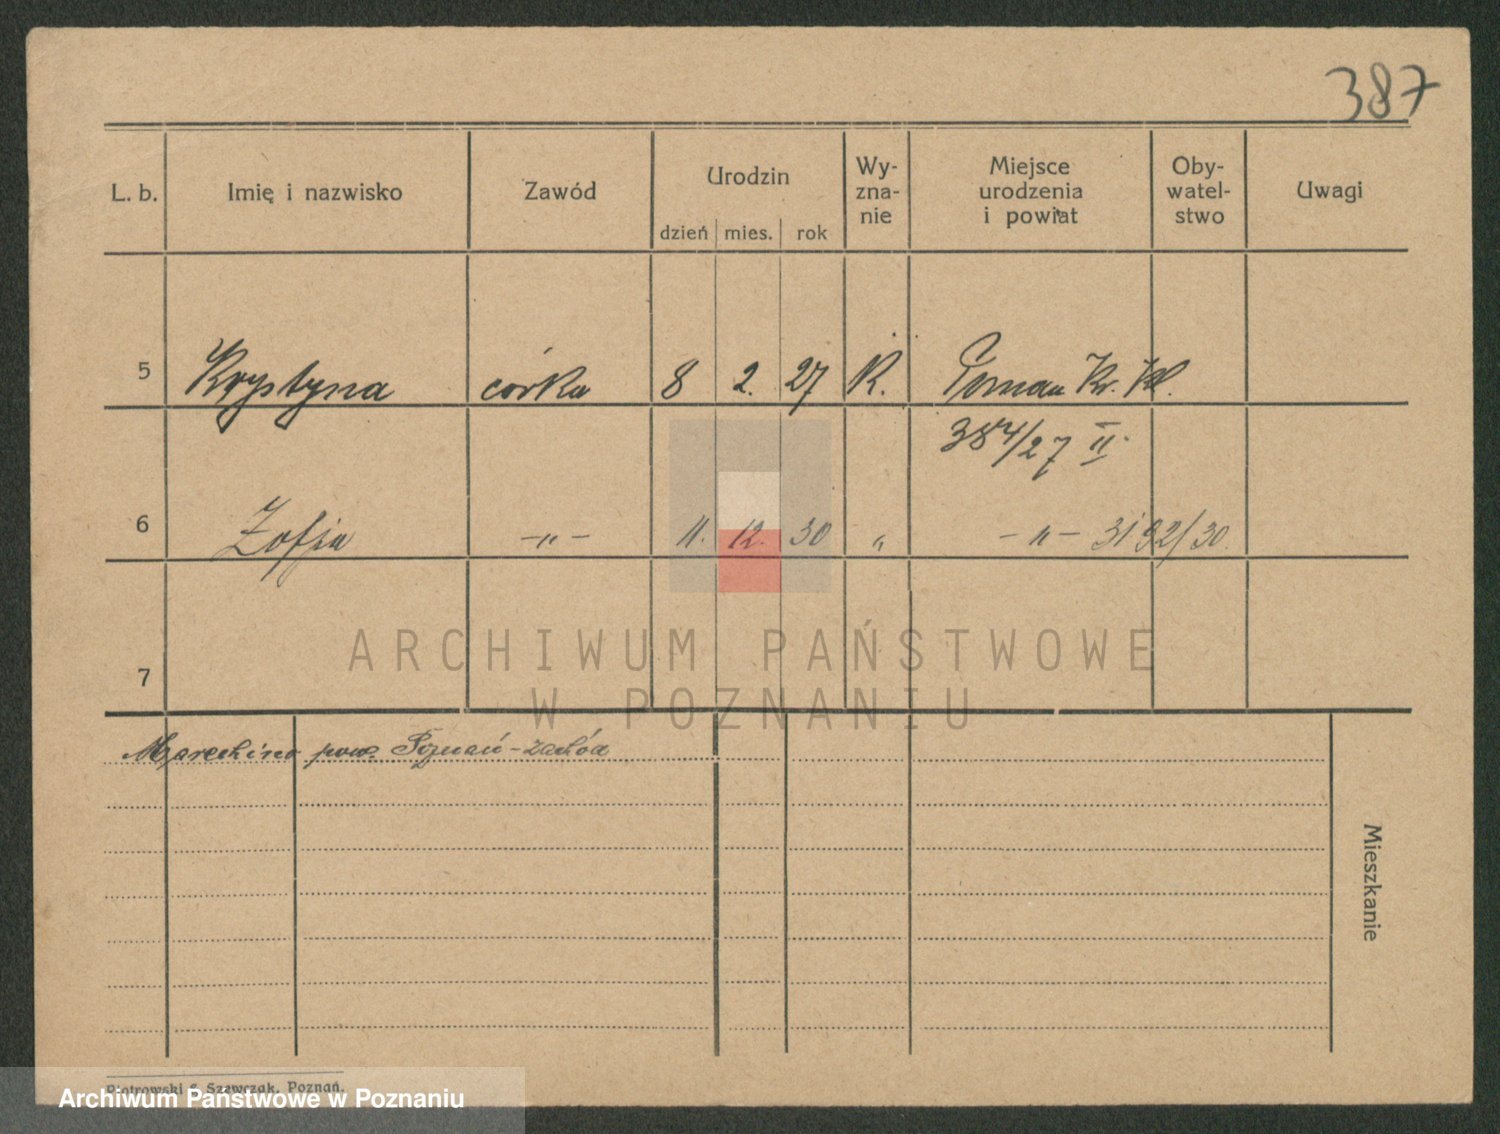 387
L. b. Imię i nazwisko Zawód Urodzin dzień mies. rok Wy-zna-nie Miejsce urodzenia i powiat Oby-watel-stwo Uwagi
5 Krystyna córka 8 2. 27 R.
384/27 II.
6 Zofja -„- 11. 12. 30 „ -„- 3192/30.
7
ARCHIWUM PAŃSTWOWE
W POZNANIU
pow. Poznań-zachód
Mieszkanie
Piotrowski & Szewczak, Poznań.
Archiwum Państwowe w Poznaniu